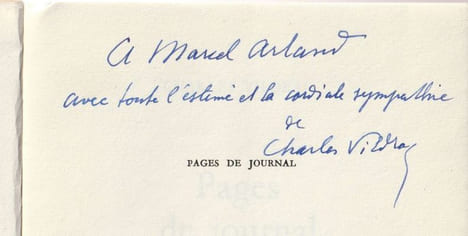 A Marcel Arland
avec toute l'estime et la cordiale sympathie
de
Charles Vildrac
PAGES DE JOURNAL
Pages
de journal